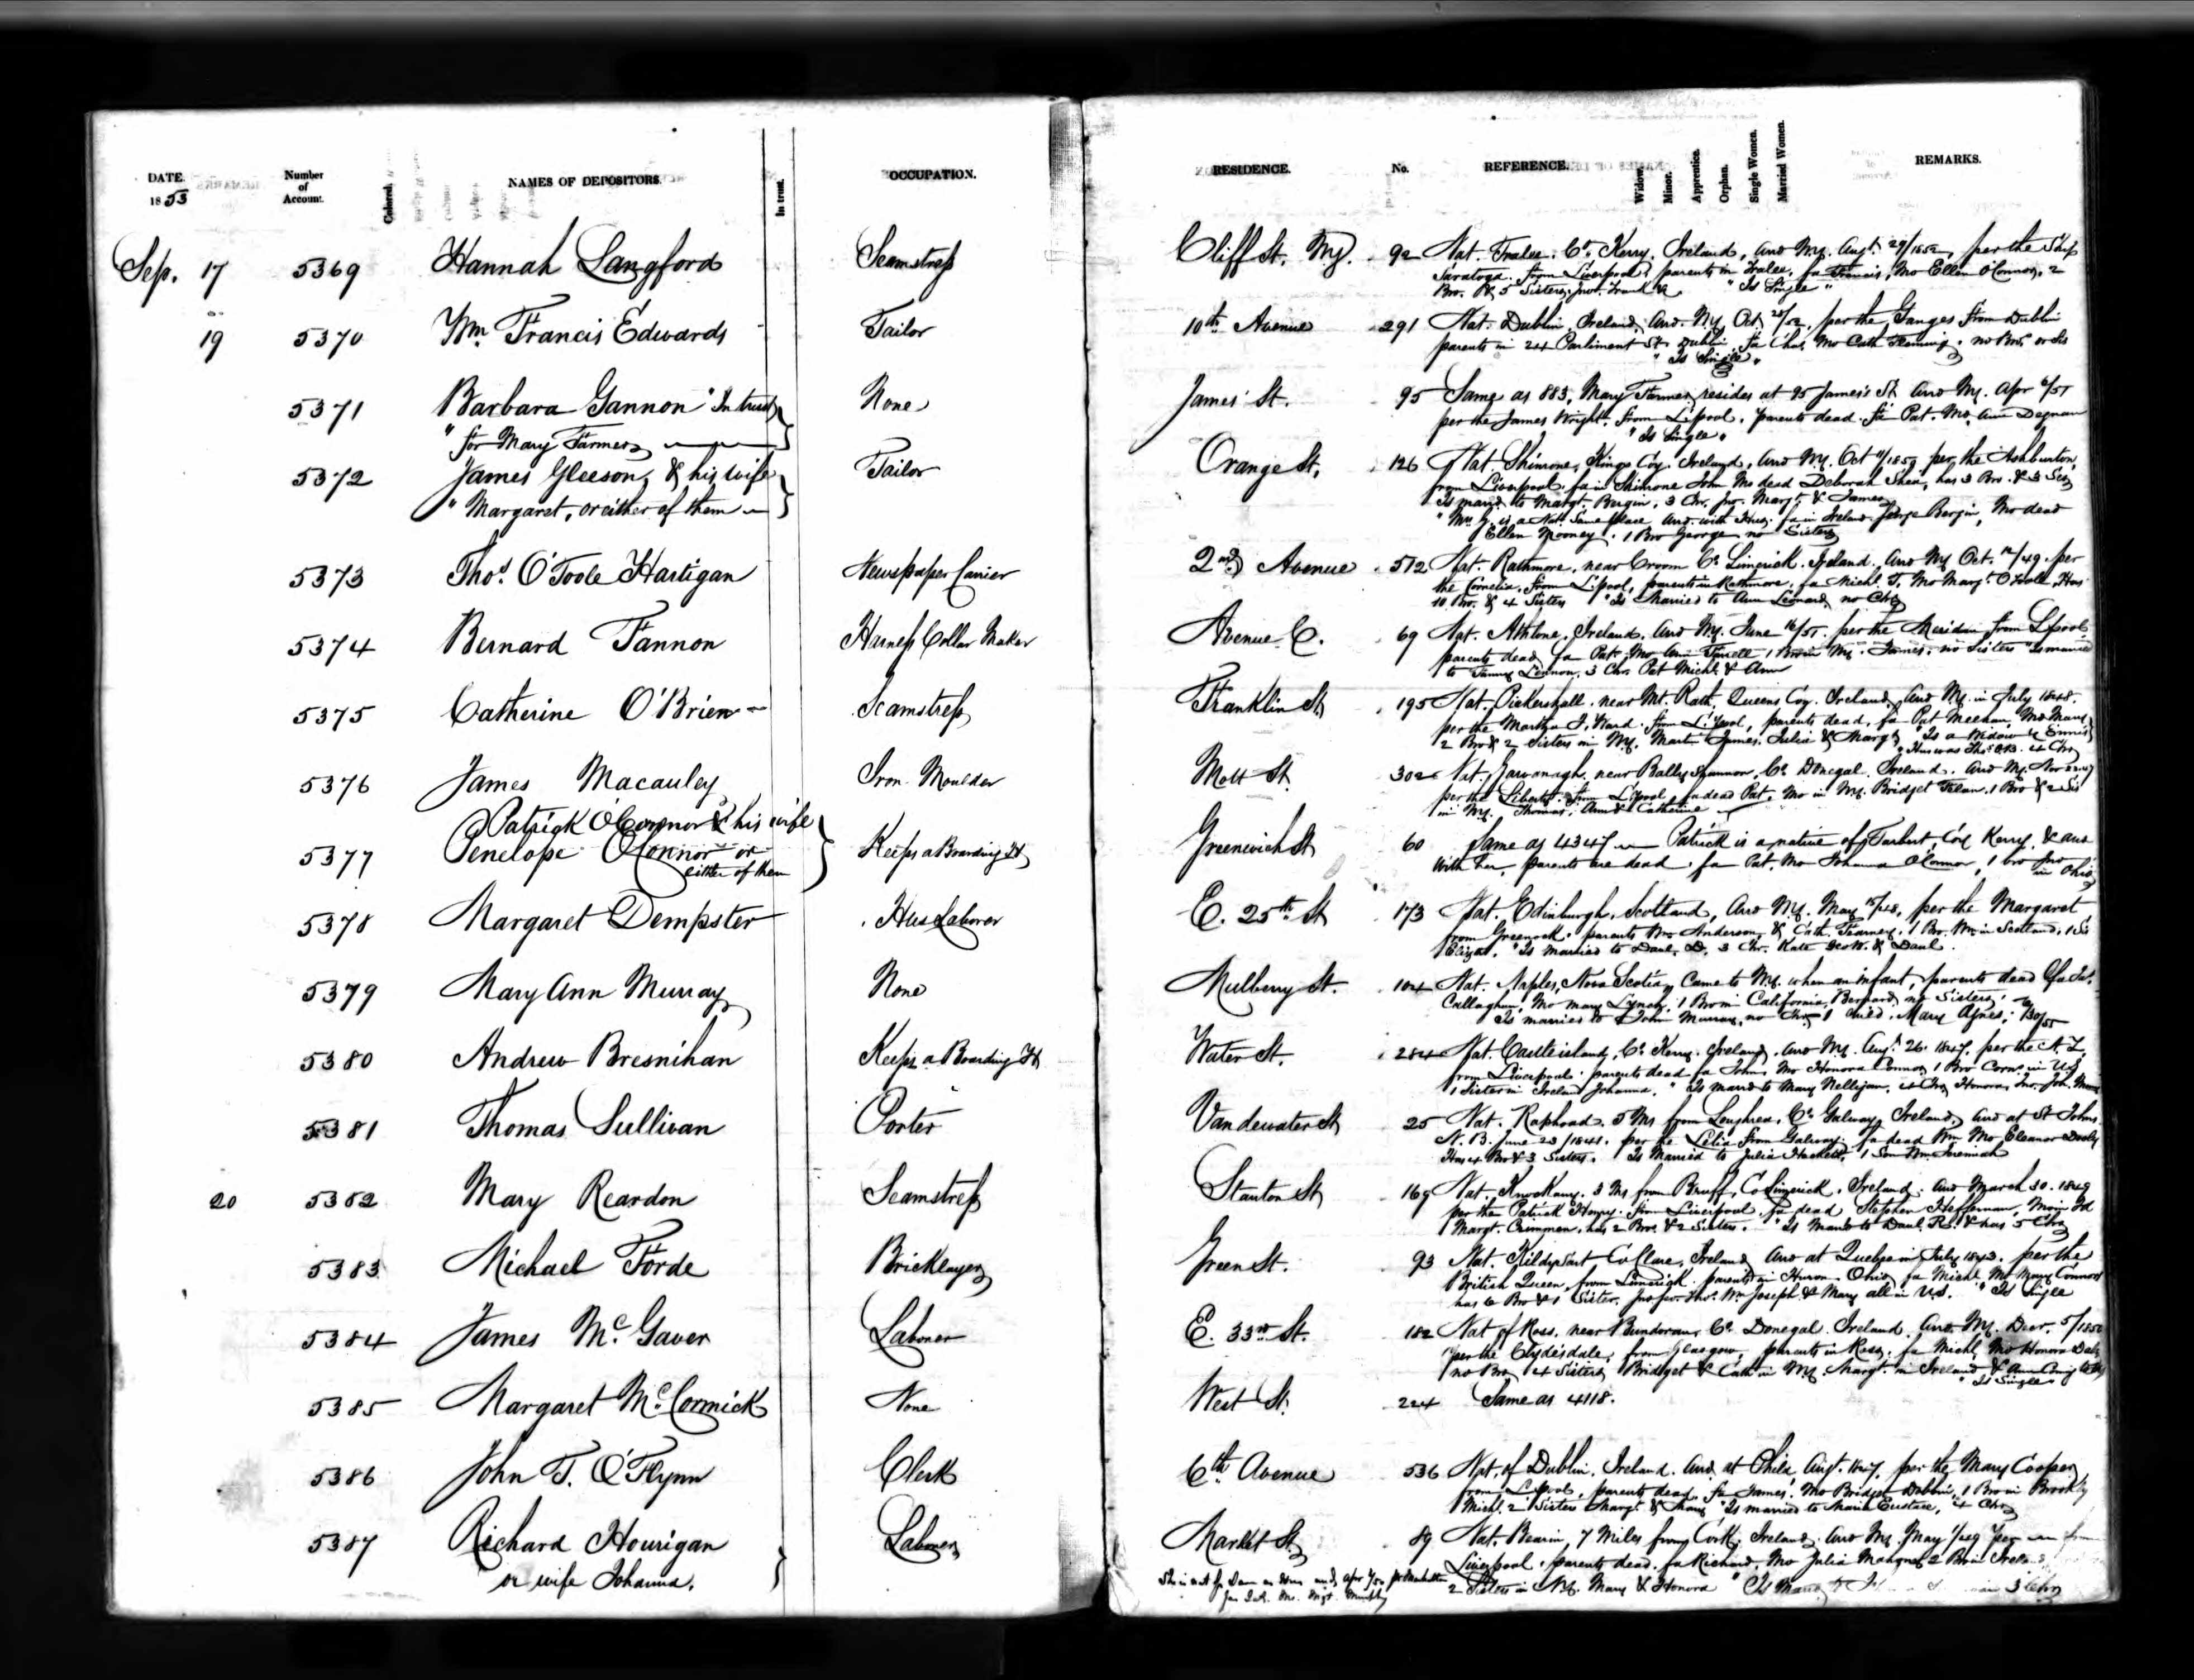 DATE. 1853
Number of Account.
Colored.
NAMES OF DEPOSITORS.
In trust.
OCCUPATION.
RESIDENCE.
No.
REFERENCE.
Widow.
Minor.
Apprentice.
Orphan.
Single Women.
Married Women.
REMARKS.
Sep. 17 5369 Hannah Langford Seamstress Cliff St. NY. 92 Nat. Tralee, Co. Kerry, Ireland, and NY. Augt. 29/1852, per the Ship
Saratoga from Liverpool, parents in Tralee, fa Francis, Mo Ellen O'Connor, 2
Bro. & 5 Sisters, Jno. Frank &c "Is Single"
19 5370 Wm. Francis Edwards Tailor 10th Avenue 291 Nat. Dublin, Ireland, arrd. NY. Oct 28/52, per the Ganges from Dublin
parents in 24 Parliment St. Dublin, fa Chas, Mo Cath Fleming, no Bro. or Sis
"Is Single"
5371 Barbara Gannon "In trust None James' St. 95 Same as 883, Mary Farmer resides at 95 James's St. Arrd NY. Apr 6/51
" for Mary Farmer
per the James Wright, from L'pool, parents dead, fa Pat. Mo. Ann Degnan
"Is Single"
5372 James Gleeson, & his wife Tailor Orange St. 126 Nat. Shinrone, Kings Coy. Ireland, Arrd NY. Oct 11/1850 per the Ashburton,
" Margaret, or either of them
from Liverpool, fa in Shinrone John Mo dead Deborah Shea, has 3 Bro. & 3 Sis
Is marrd to Margt. Bergin, 3 Chr. Jno. Margt. & James
" Mrs G. is a Nat. Same place, Arrd. with Hus. fa in Ireland George Bergin, Mo dead
Ellen Mooney. 1 Bro George no Sisters
5373 Thos. O'Toole Hartigan Newspaper Carrier 2nd Avenue 512 Nat. Rathmore, near Croom Co. Limerick, Ireland. Arrd NY Oct. 12/49. per
the Cornelia, from L'pool, parents in Rathmore, fa Michl. T. Mo Margt. O'Toole, Has
10 Bro. & 4 Sisters "Is Married to Ann Leonard, no Chr
5374 Bernard Fannon Harness Collar Maker Avenue C. 69 Nat. Athlone, Ireland, Arrd NY. June 16/51. per the Meridian from L'pool,
parents dead, fa Pat. Mo Ann Farrell 1 Bro in NY. James, no Sisters "Is married
to Fanny Lennon, 3 Chr. Pat Michl. & Ann
5375 Catherine O'Brien Seamstress Franklin St. 195 Nat. near Mt. Rath, Queens Coy. Ireland, Arrd NY. in July 1848.
per the Martha J. Ward, from L'pool, parents dead, fa Pat Meehan, Mo Mary
2 Bro & 2 Sisters in NY. Martin James, Julia & Margt. "Is a Widow
"Hus was Thos. O'B. 4 Chr
5376 James Macauley Iron Moulder Mott St. 302 Nat. near Ballyshannon, Co. Donegal, Ireland. Arrd NY. Nov
per the Liberty from L'pool, fa dead Pat, Mo in NY. Bridget 1 Bro & 2 Sis
in NY. Thomas, Ann & Catherine
Patrick O'Connor & his wife
5377 Penelope O'Connor or Keeps a Boarding H. Greenwich St. 60 Same as 4347 Patrick is a native of Tarbert, Coy Kerry, & arrd
either of them
with her, parents are dead, fa Pat. Mo Johanna O'Connor, 1 bro Jno
in Ohio
5378 Margaret Dempster Hus Laborer E. 25th St 173 Nat. Edinburgh, Scotland, Arrd NY. May 15/48, per the Margaret,
from Greenock, parents Wm. Anderson, & Cath. Kearney, 1 Bro. Wm in Scotland, 1 Sis
Elizat. "Is Married to Danl. D. 3 Chr. Kate Scott & Danl.
5379 Mary Ann Murray None Mulberry St. 104 Nat. Naples, Nova Scotia, Came to NY. when an infant, parents dead fa
Callaghan, Mo Mary Lynch, 1 Bro in California, Bernard, no Sisters,
Is married to John Murray, no Chr. 1 child, Mary Agnes,
5380 Andrew Bresnihan Keeps a Boarding H. Water St. 284 Nat. Castleisland, Co. Kerry, Ireland, Arrd NY. Augt. 26. 1847. per the A. Z.
from Liverpool, parents dead fa John, Mo Honora Connor 1 Bro Corns. in US
1 Sister in Ireland Johanna, "Is marrd to Mary Nelligan, 4 Chr Honora, Jno. Joh.
5381 Thomas Sullivan Porter Vandewater St 25 Nat. 5 Ms from Loughrea, Co. Galway, Ireland, Arrd at St Johns
N. B. June 20/1841, per the Lelia from Galway, fa dead Wm Mo Eleanor Dooly
Has 4 Bro & 3 Sisters. Is Married to Julia Hackett, 1 Son Wm Jeremiah
20 5382 Mary Reardon Seamstress Stanton St 169 Nat. Knockany, 3 Ms from Bruff, Co Limerick, Ireland. Arrd March 30. 1849
per the Patrick Henry from Liverpool, fa dead Stephen Heffernan, Mo in Ird
Margt. Crimmen, has 2 Bro. & 2 Sisters. "Is Marrd to Danl. R. & has 5 Chr
5383 Michael Forde Bricklayer Green St. 93 Nat. Kildysart Co Clare, Ireland, Arrd at Quebec in July 1843. per the
British Queen, from Limerick, parents in Huron Ohio, fa Michl. Mo Mary Connors
has 6 Bro & 1 Sister, Thos. Wm Joseph & Mary all in U.S. "Is Single
5384 James McGaver Laborer E. 33rd St. 182 Nat of Ross, near Bundoran, Co. Donegal, Ireland, Arrd. NY. Decr. 5/1850
per the Clydesdale, from Glasgow, parents in Ross, fa Michl, Mo Honora
no Bro 4 Sisters, Bridget & Cath in NY. Margt. in Ireland & Ann
"Is Single"
5385 Margaret McCormick None West St. 224 Same as 4118.
5386 John T. O'Flynn Clerk 6th Avenue 536 Nat. of Dublin, Ireland. Arrd at Phila Augt. 1847, per the Mary Cooper
from L'pool, parents dead, fa James, Mo Bridget Dobbin, 1 Bro in Brooklyn
Michl. 2 Sisters Margt. & Mary "Is married to Maria Eustace, 4 Chr
5387 Richard Hourigan Laborer Market St. 89 Nat. 7 Miles from Cork, Ireland, Arrd NY. May 1/49 per
or wife Johanna.
Liverpool, parents dead, fa Richard, Mo Julia 2 Bro in
2 Sisters in NY. Mary & Honora "Is Marrd 3 Chr